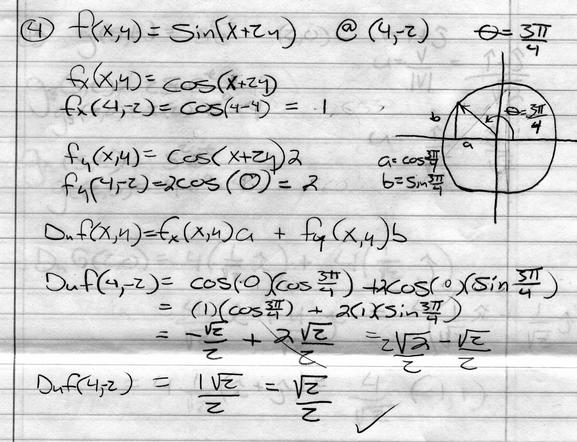 ④ f(x,y) = sin(x+2y) @ (4,-2) θ = 3π/4
fx(x,y) = cos(x+2y)
fx(4,-2) = cos(4-4) = 1
θ = 3π/4
b
a
fy(x,y) = cos(x+2y)2
a = cos 3π/4
fy(4,-2) = 2cos(0) = 2
b = sin 3π/4
Duf(x,y) = fx(x,y)a + fy(x,y)b
Duf(4,-2) = cos(0)(cos 3π/4) + 2cos(0)(sin 3π/4)
= (1)(cos 3π/4) + 2(1)(sin 3π/4)
= -√2/2 + 2√2/2 = 2√2/2 - √2/2
Duf(4,-2) = 1√2/2 = √2/2 ✓